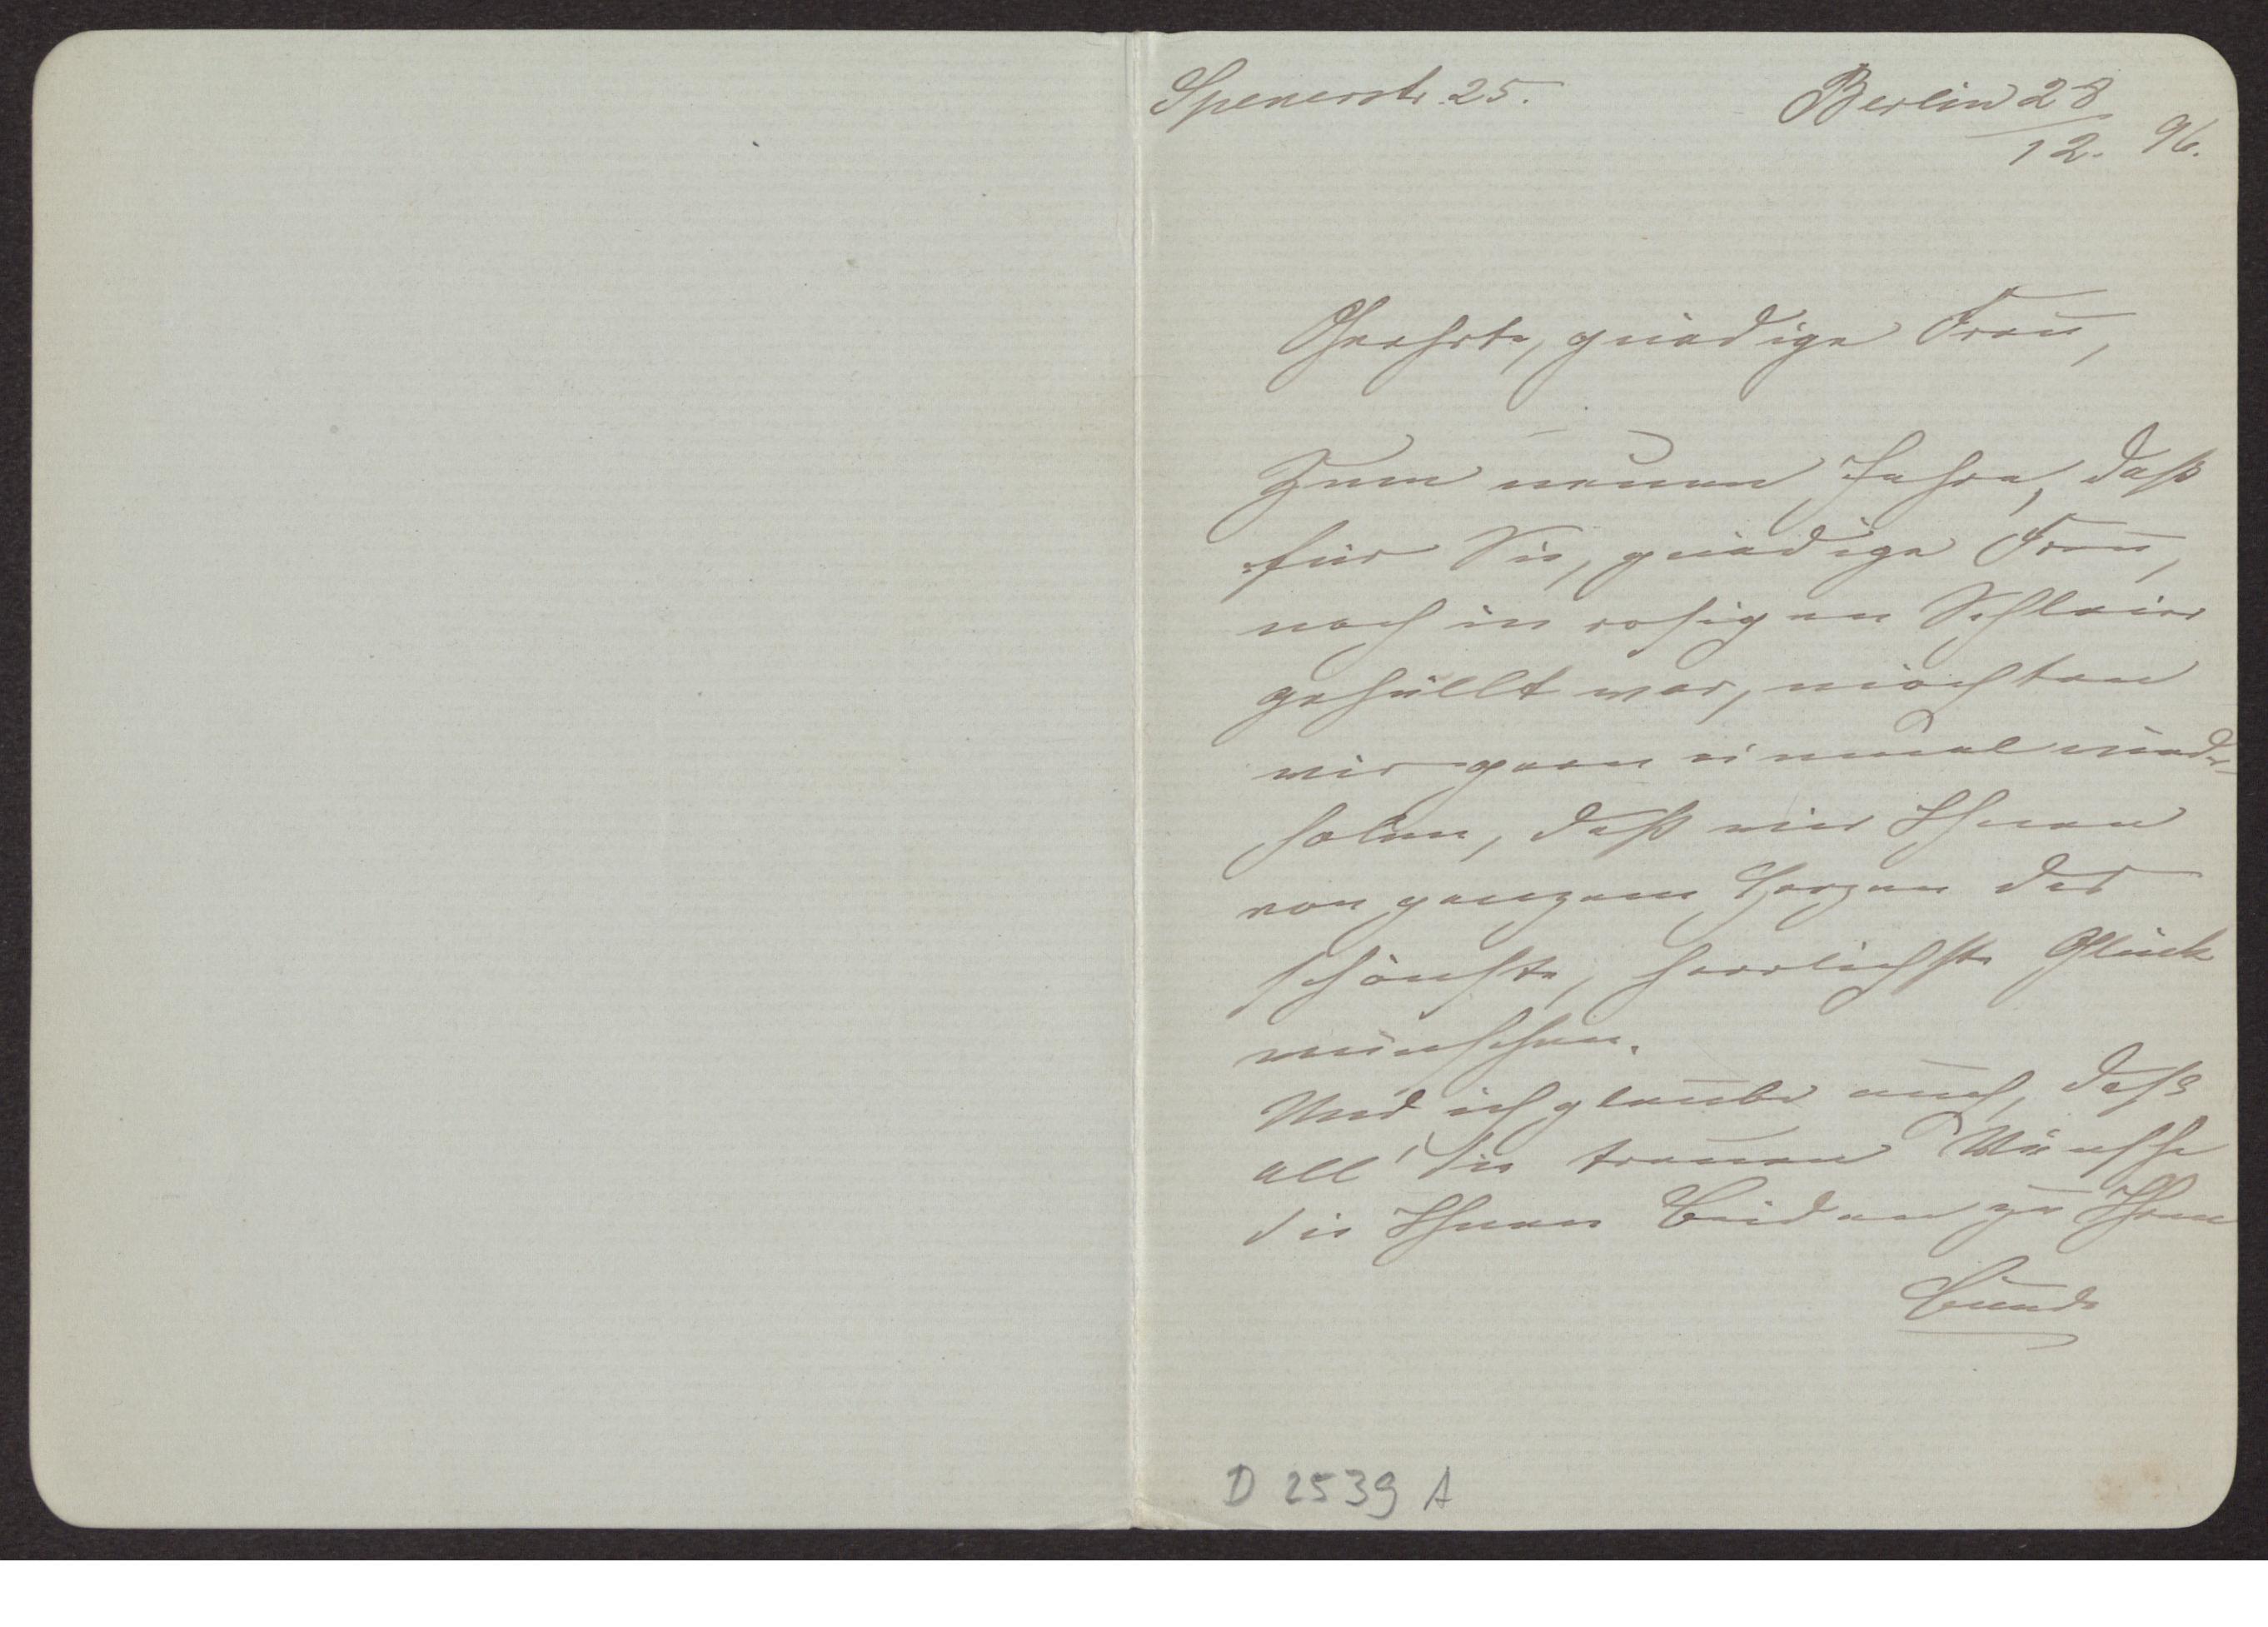 Spenerstr. 25.
Berlin 28
12. 96.
Geehrte, gnädige Frau,
Zum neuen Jahre, daß
für Sie, gnädige Frau,
noch in rosigen Schleier
gehüllt war, möchten
wir gern einmal wieder-
holen, daß wir Ihnen
von ganzem Herzen das
schönste, herrlichste Glück
wünschen.
Und ich glaube auch, daß
all' die treuen Wünsche
die Ihnen Beiden zu Ihrem
Bunde
D 2539 A